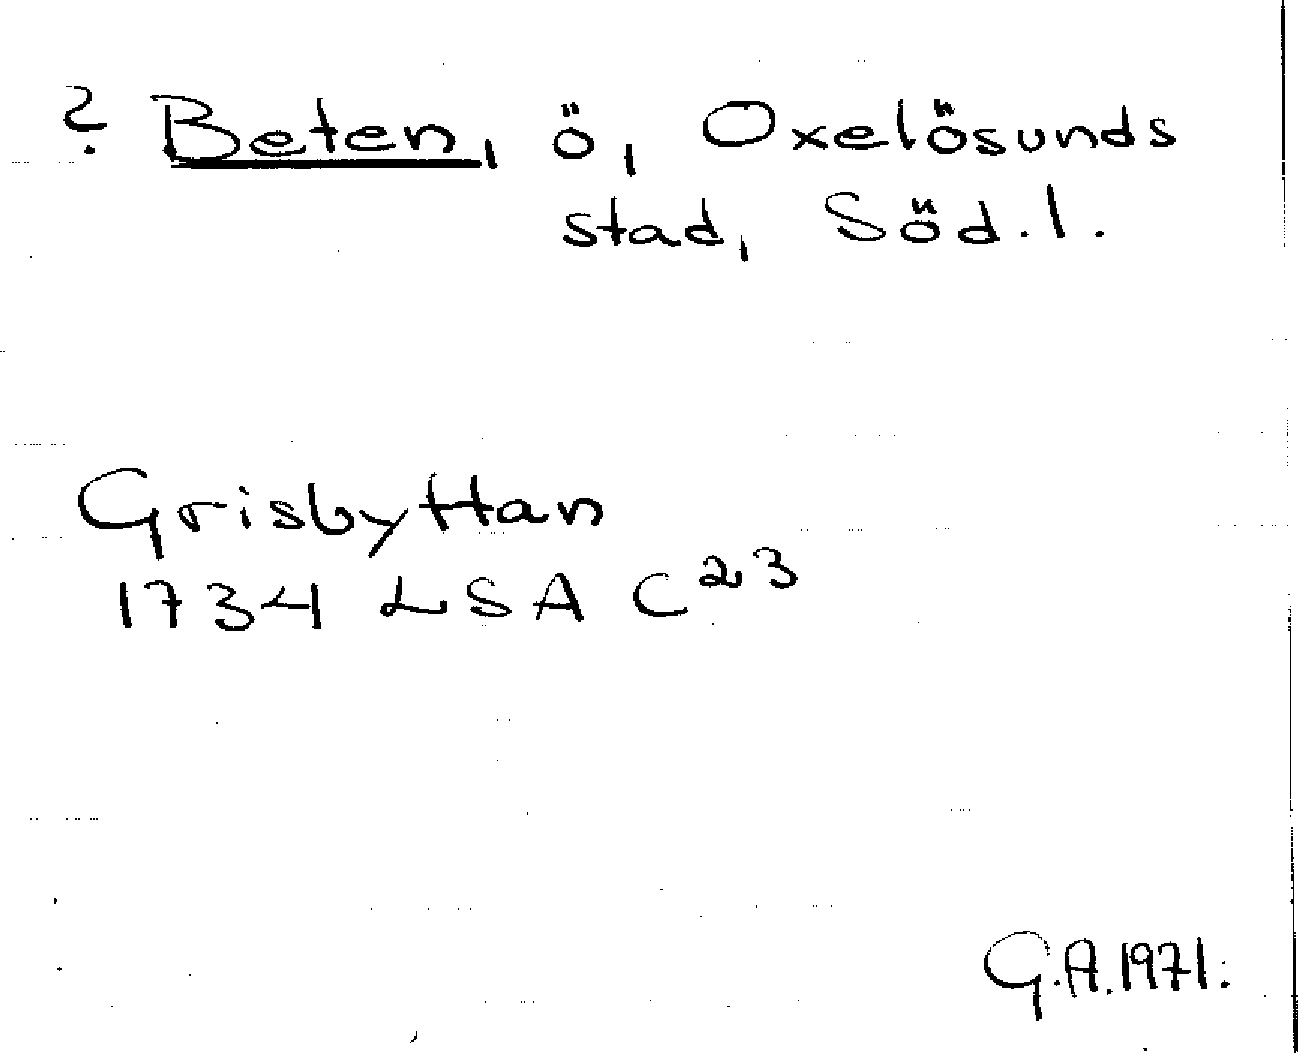 ? Beten, ö, Oxelösunds
stad, Söd. l.
Grisbyttan
1734 LSA C23
G.A. 1971.